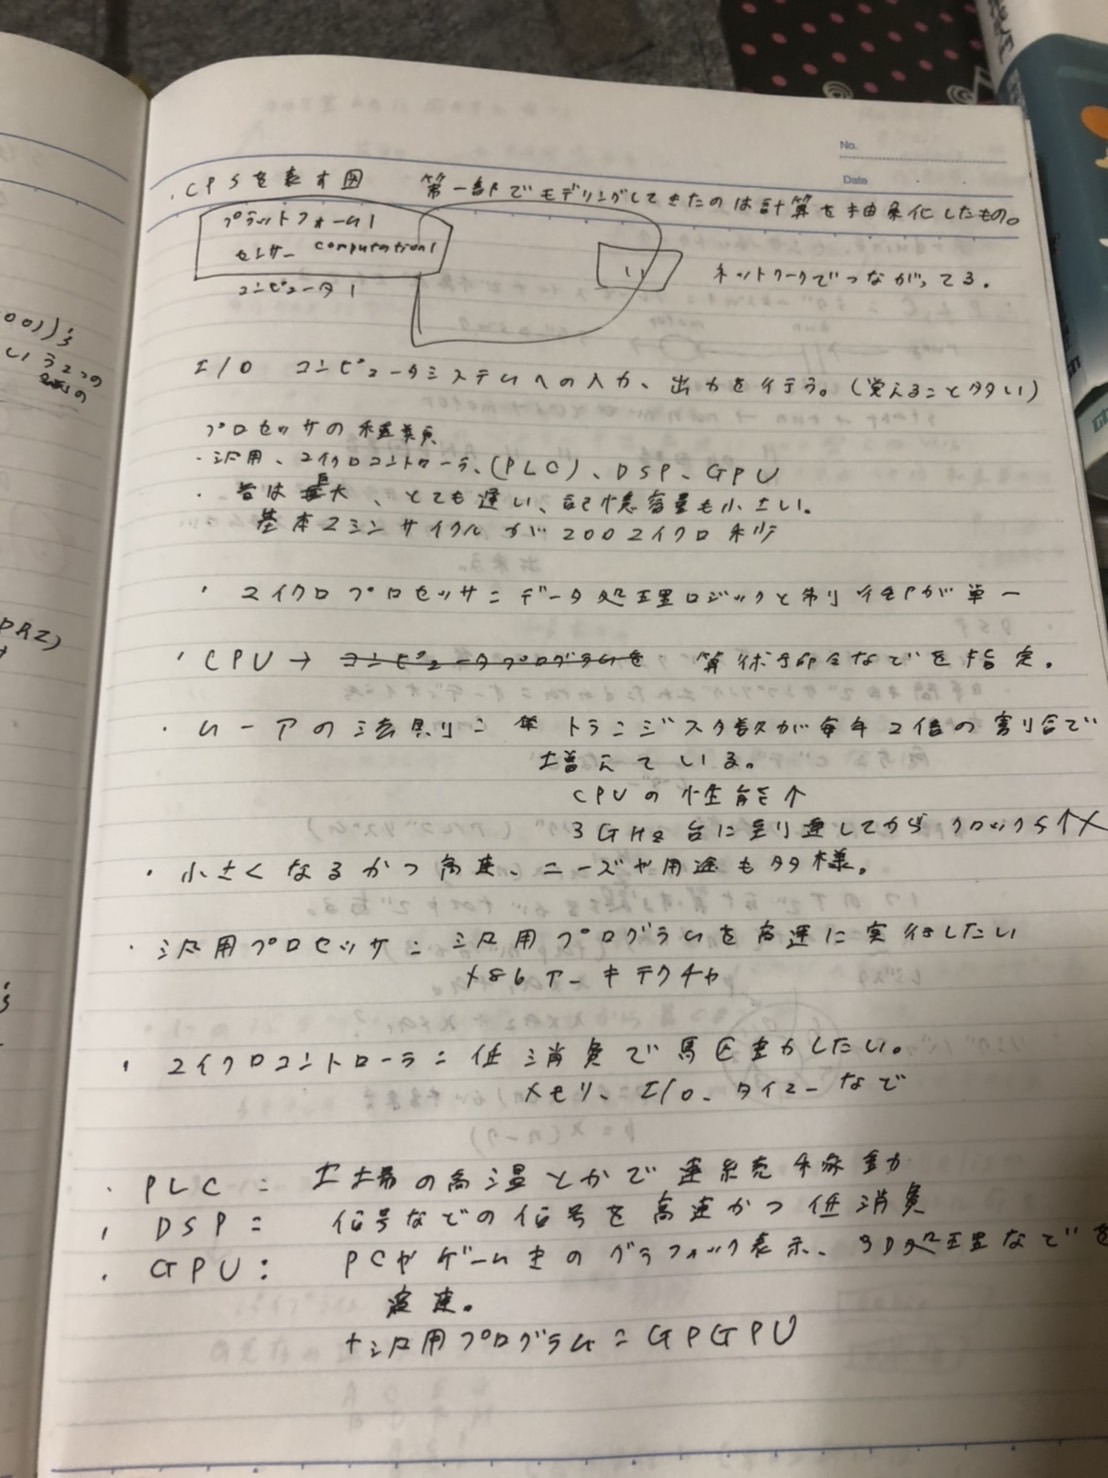 No.
Date
・CPSを表す図　第一部でモデリングしてきたのは計算を抽象化したもの。
プラットフォーム1
センサー computation1
コンピュータ1
ネットワークでつながってる。
I/O コンピュータシステムへの入力、出力を行う。(覚えること多い)
プロセッサの種類
・汎用、マイクロコントローラ、(PLC)、DSP、GPU
・昔は最大、とても遅い、記憶容量も小さい。
基本マシンサイクルが200マイクロ秒
・マイクロプロセッサ:データ処理ロジックと制御が単一
・CPU → コンピュータプログラムを 算術命令などを指定。
・ムーアの法則: トランジスタ数が毎年2倍の割合で
増えている。
CPUの性能↑
3GHz台に到達してからクロック↑×
・小さくなるかつ高速、ニーズや用途も多様。
・汎用プロセッサ:汎用プログラムを高速に実行したい
x86アーキテクチャ
・マイクロコントローラ:低消費で駆動したい。
メモリ、I/O、タイマーなど
・PLC: 工場の高温とかで連続稼動
・DSP: 信号などの信号を高速かつ低消費
・GPU: PCやゲーム機のグラフィック表示、3D処理などを
高速。
+汎用プログラム=GPGPU